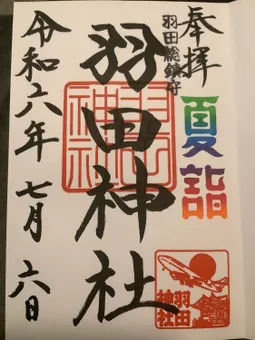 奉拝
夏詣
羽田総鎮守
羽田神社
令和六年 七月 六日
羽田
神社
羽田
神社